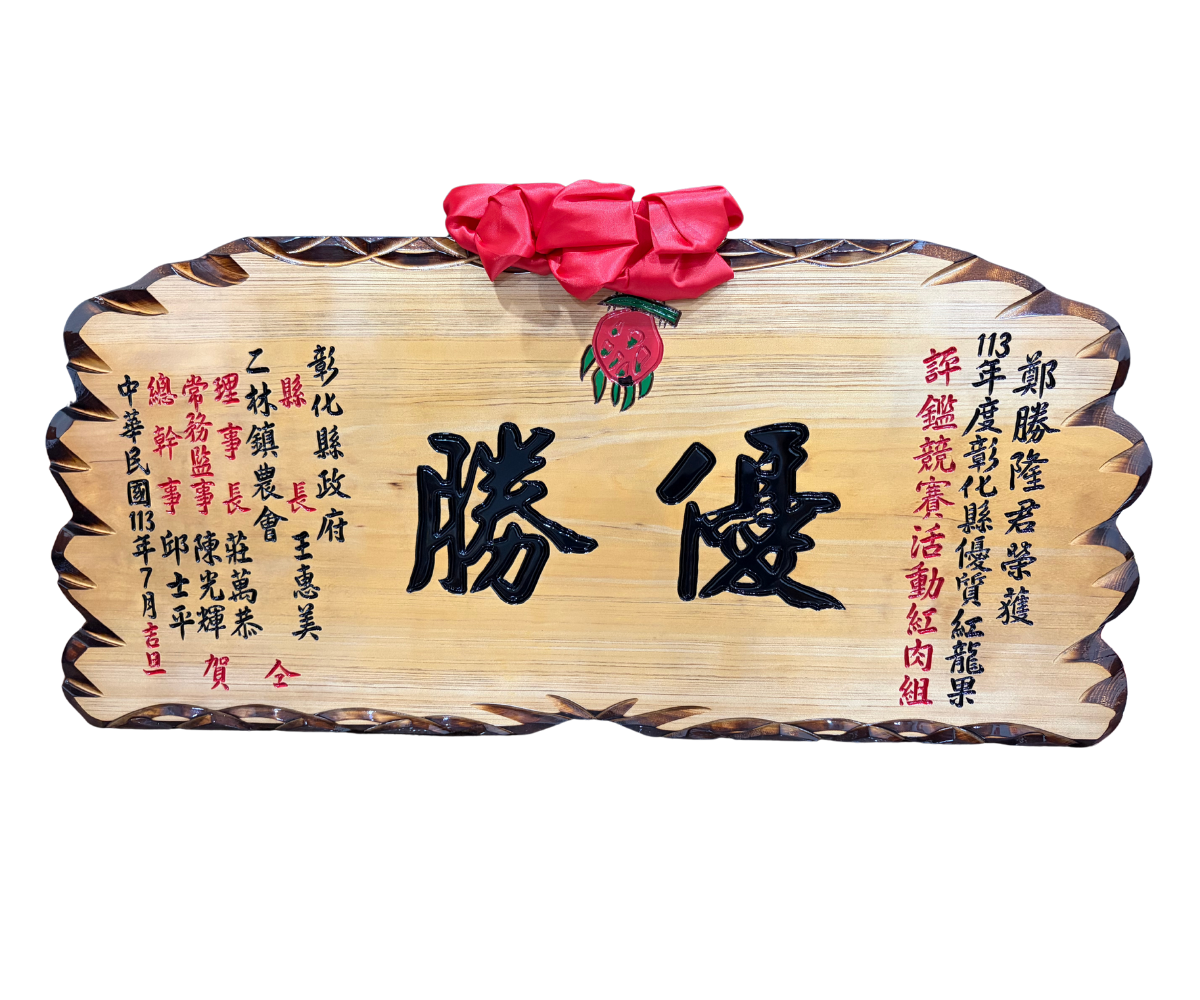 鄭勝隆君榮獲
113年度彰化縣優質紅龍果
評鑑競賽活動紅肉組
優勝
彰化縣政府
縣長 王惠美
二林鎮農會
理事長 莊萬恭
常務監事 陳光輝
總幹事 邱士平
仝賀
中華民國113年7月吉旦